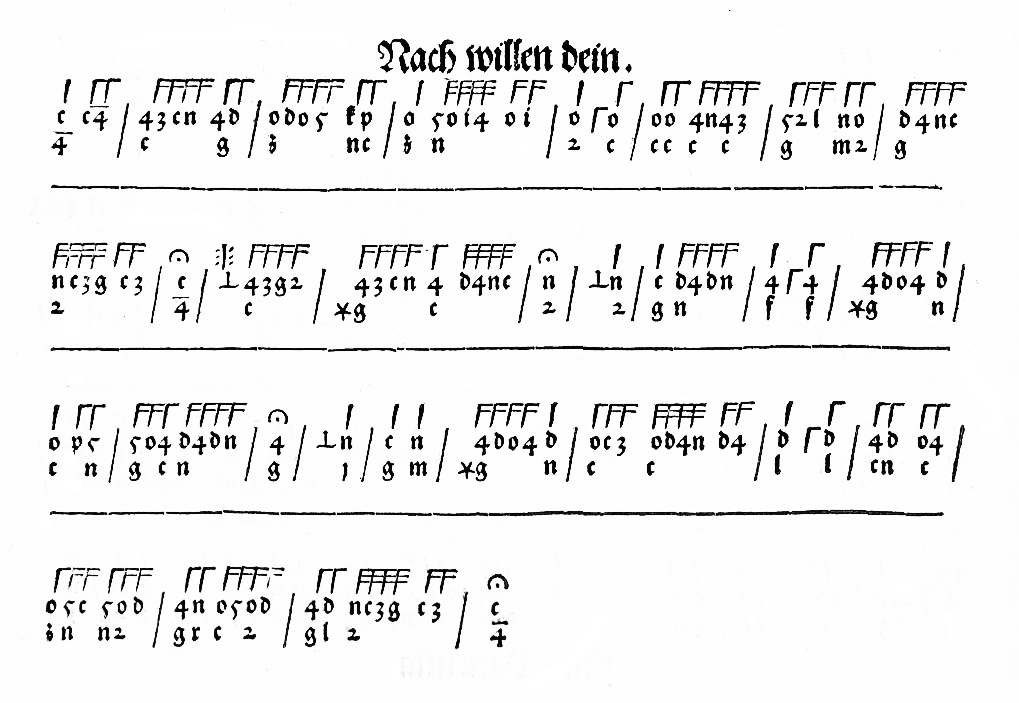 Nach willen dein.
c c4 / 43cn 4d / odo5 kp / o 5oi4 oi / o o / oo 4n43 / 52l no / d4nc
4 / c g / i nc / i n / 2 c / cc c c / g m2 / g
nc3g c3 / c / ⊥43g2 / 43cn 4 d4nc / n / ⊥n / c d4dn / 4 4 / 4do4 d /
2 / 4 / c / *g c / 2 / 2 / g n / f f / *g n /
o p5 / 5o4 d4dn / 4 / ⊥n / c n / 4do4 d / oc3 od4n d4 / d d / 4d o4 /
c n / g c n / g / j / g m / *g n / c c / l l / cn c /
o5c 5od / 4n o5od / 4d nc3g c3 / c
i n n2 / gr c 2 / gl 2 / 4